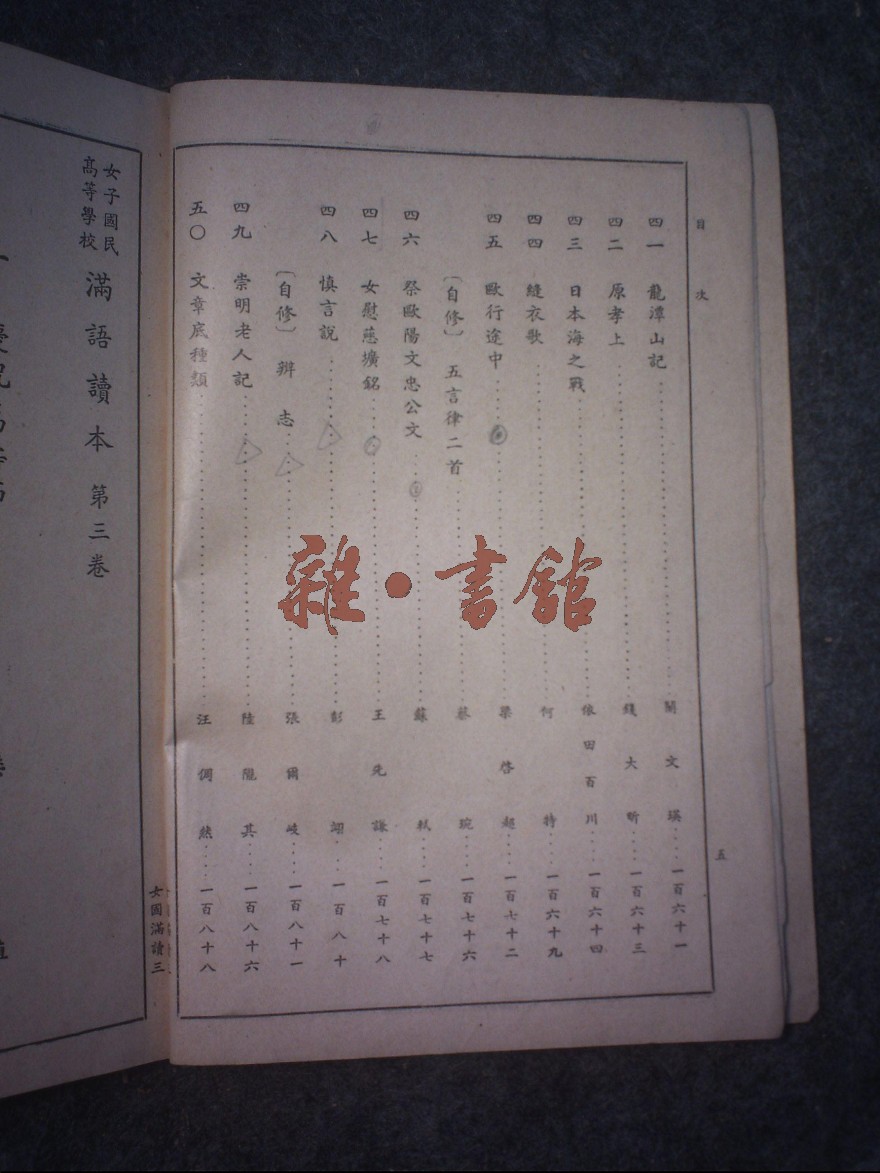 目次
四一 龍潭山記 關文瑛 一百六十一
四二 原孝上 錢大昕 一百六十三
四三 日本海之戰 依田百川 一百六十四
四四 縫衣歌 何特 一百六十九
四五 歐行途中 梁啓超 一百七十二
〔自修〕 五言律二首 蔡琬 一百七十六
四六 祭歐陽文忠公文 蘇軾 一百七十七
四七 女慰慈壙銘 王先謙 一百七十八
四八 慎言說 彭翊 一百八十
〔自修〕 辨志 張爾岐 一百八十一
四九 崇明老人記 陸隴其 一百八十六
五〇 文章底種類 汪倜然 一百八十八
五
女國滿讀三
女子國民高等學校 滿語讀本 第三卷
雜·書館